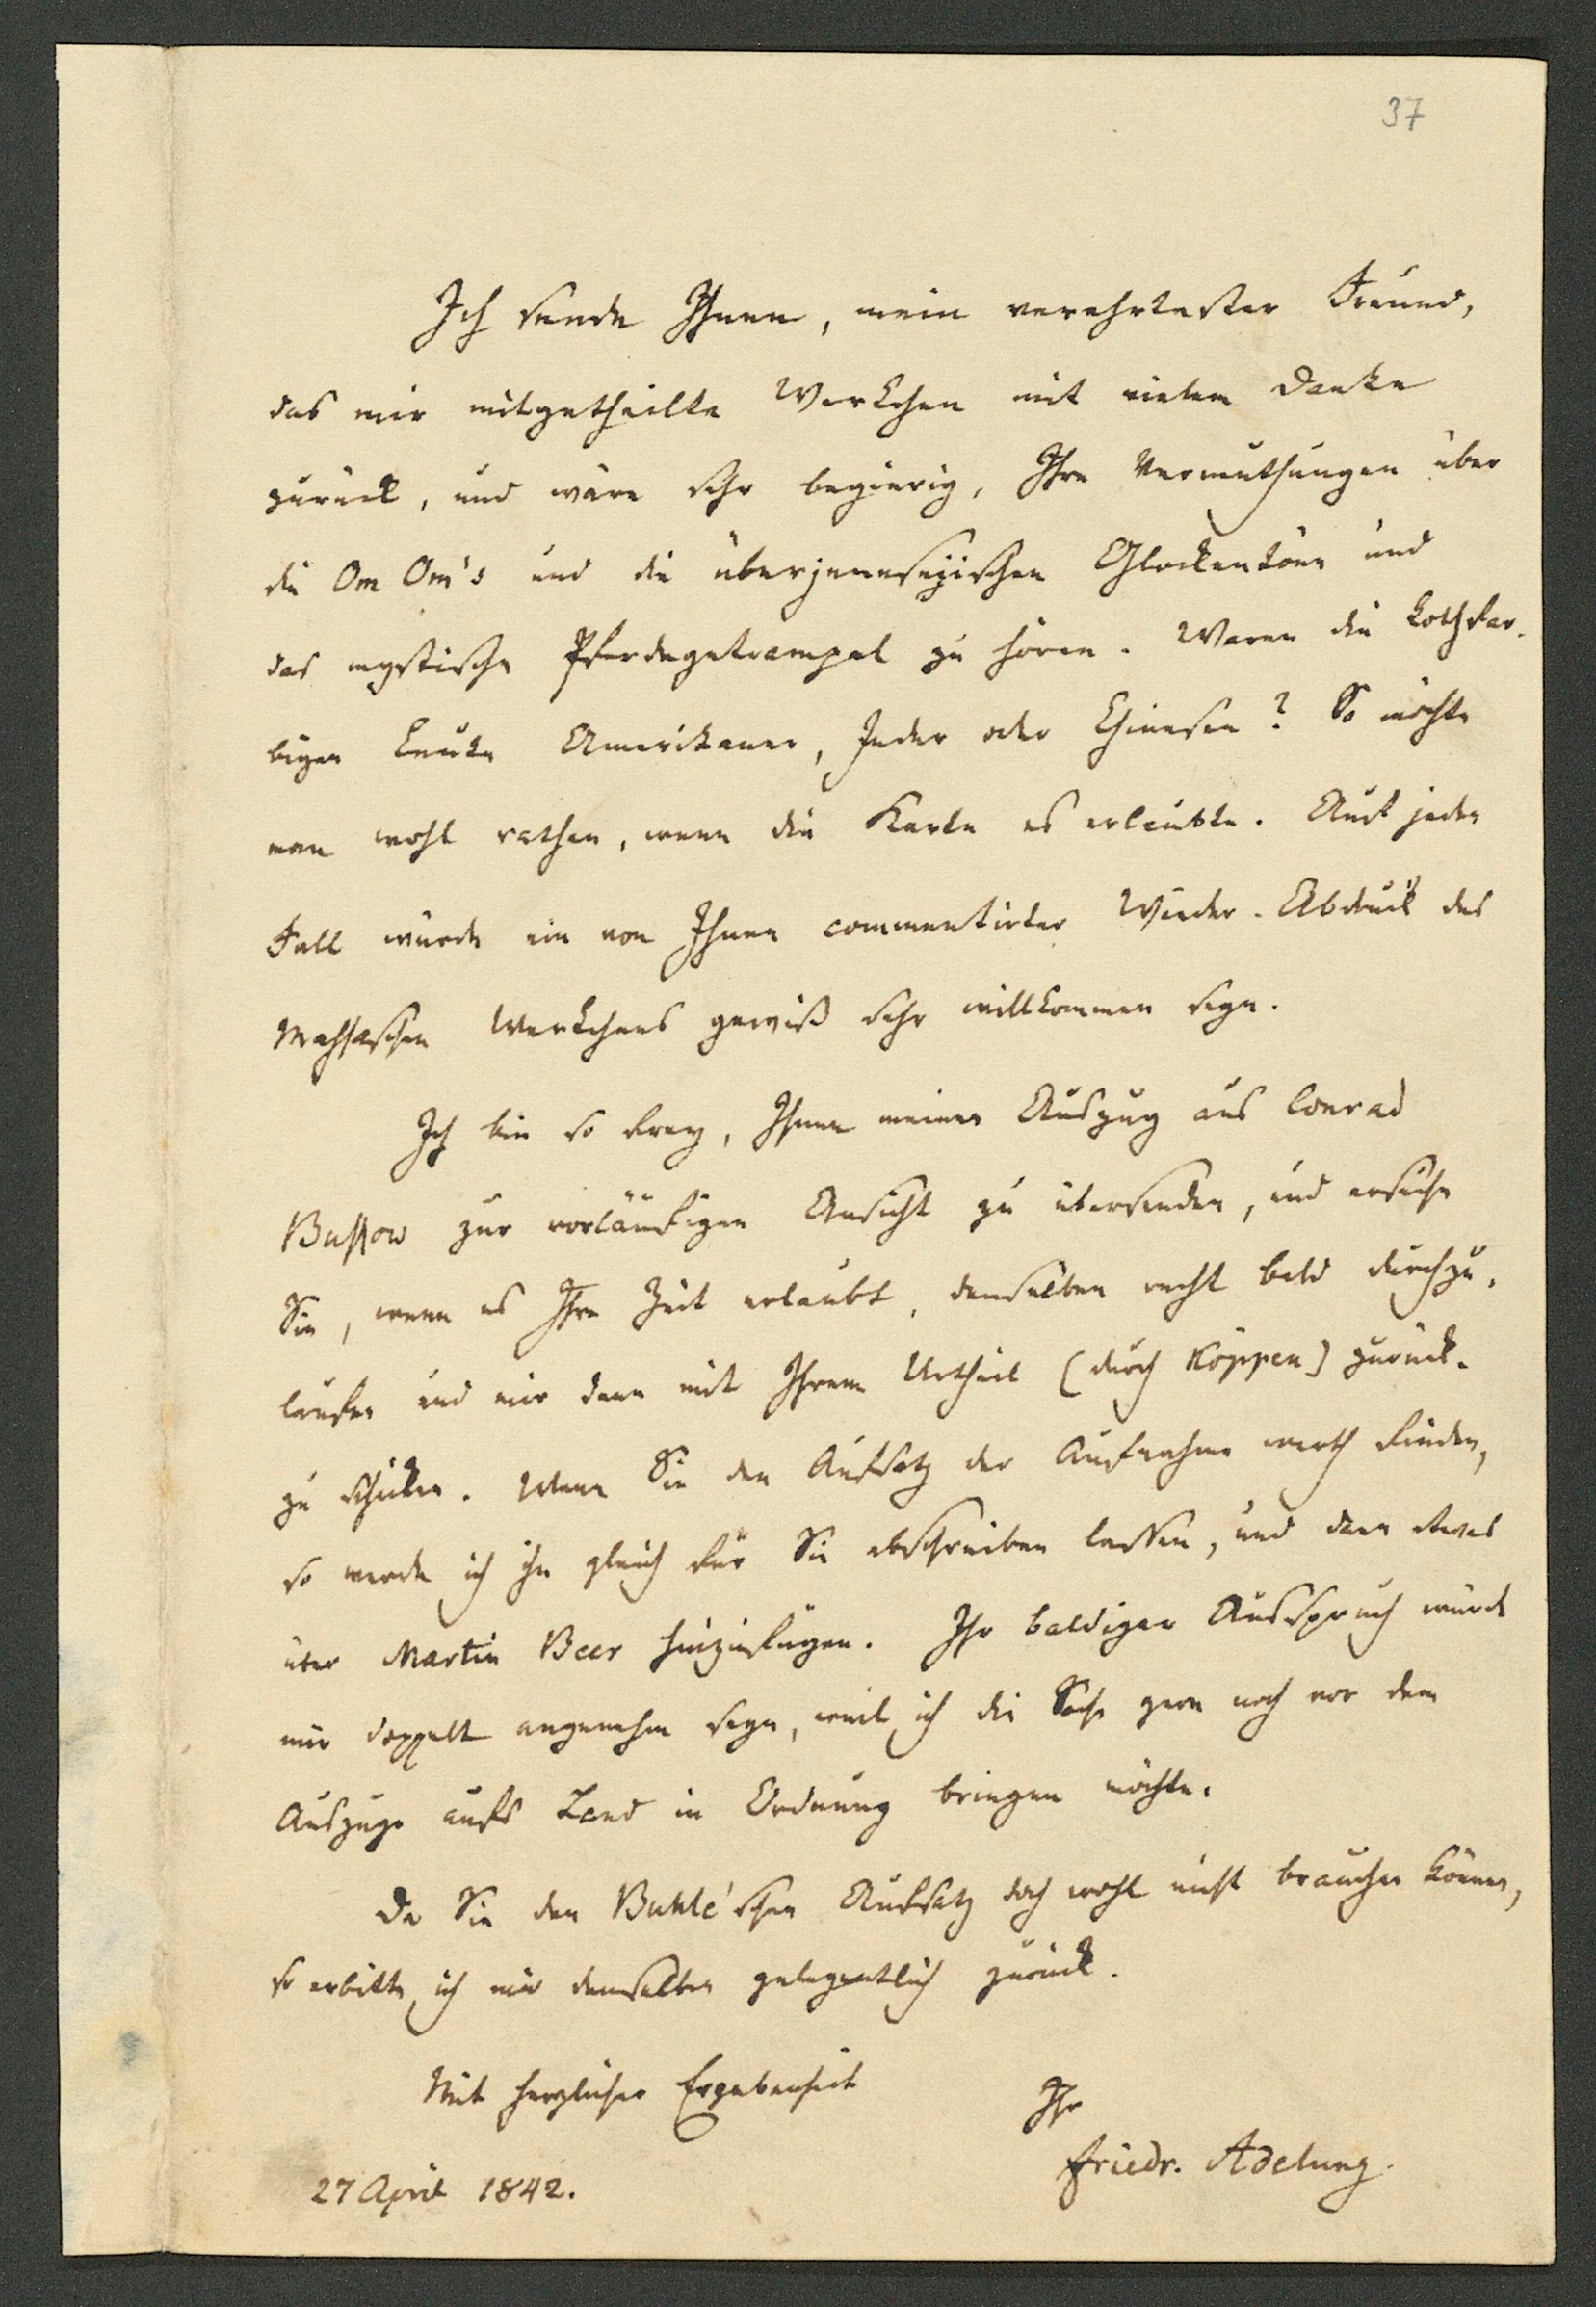 37
Ich sende Ihnen, mein verehrtester Freund,
das mir mitgetheilte Werkchen mit vielem Danke
zurück, und wäre sehr begierig, Ihre Vermuthungen über
die Om Om's und die überjenesejischen Glockentöne und
das mystische Pferdegetrampel zu hören. Waren die rothfar-
bigen Leute Amerikaner, Inder oder Chinesen? So möchte
man wohl rathen, wenn die Karte es erlaubte. Auf jeden
Fall würde ein von Ihnen commentirter Wieder-Abdruck des
Massaschen Werkchens gewiß sehr willkommen seyn.
Ich bin so frey, Ihnen meinen Auszug aus Conrad
Bussow zur vorläufigen Ansicht zu übersenden, und ersuche
Sie, wenn es Ihre Zeit erlaubt, denselben recht bald durchzu-
laufen und mir dann mit Ihrem Urtheil (durch Köppen) zurück-
zu schicken. Wenn Sie den Aufsatz der Aufnahme werth finden,
so werde ich ihn gleich für Sie abschreiben lassen, und dann etwas
über Martin Beer hinzufügen. Ihr baldiger Ausspruch würde
mir doppelt angenehm seyn, weil ich die Sache gern noch vor dem
Auszuge aufs Land in Ordnung bringen möchte.
Da Sie den Buhle'schen Aufsatz doch wohl nicht brauchen können,
so erbitte ich mir denselben gelegentlich zurück.
Mit herzlicher Ergebenheit
Ihr
Friedr. Adelung.
27 April 1842.